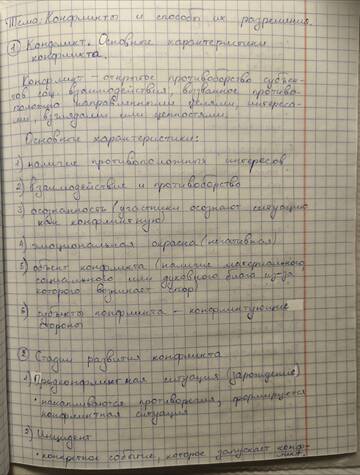 Тема: Конфликты и способы их разрешения.
① Конфликт. Основные характеристики
конфликта.
Конфликт – открытое противоборство субъек-
тов соц. взаимодействия, вызванное противо-
положно направленными целями, интереса-
ми, взглядами или ценностями.
Основные характеристики:
1) наличие противоположных интересов
2) взаимодействие и противоборство
3) осознанность (участники осознают ситуацию
как конфликтную)
4) эмоциональная окраска (негативная)
5) объект конфликта (наличие материального,
социального или духовного блага из-за
которого возникает спор)
6) субъекты конфликта – конфликтующие
стороны
② Стадии развития конфликта
1) Предконфликтная ситуация (зарождение)
• накапливаются противоречия, формируется
конфликтная ситуация
2) Инцидент
• конкретное событие, которое запускает конф-